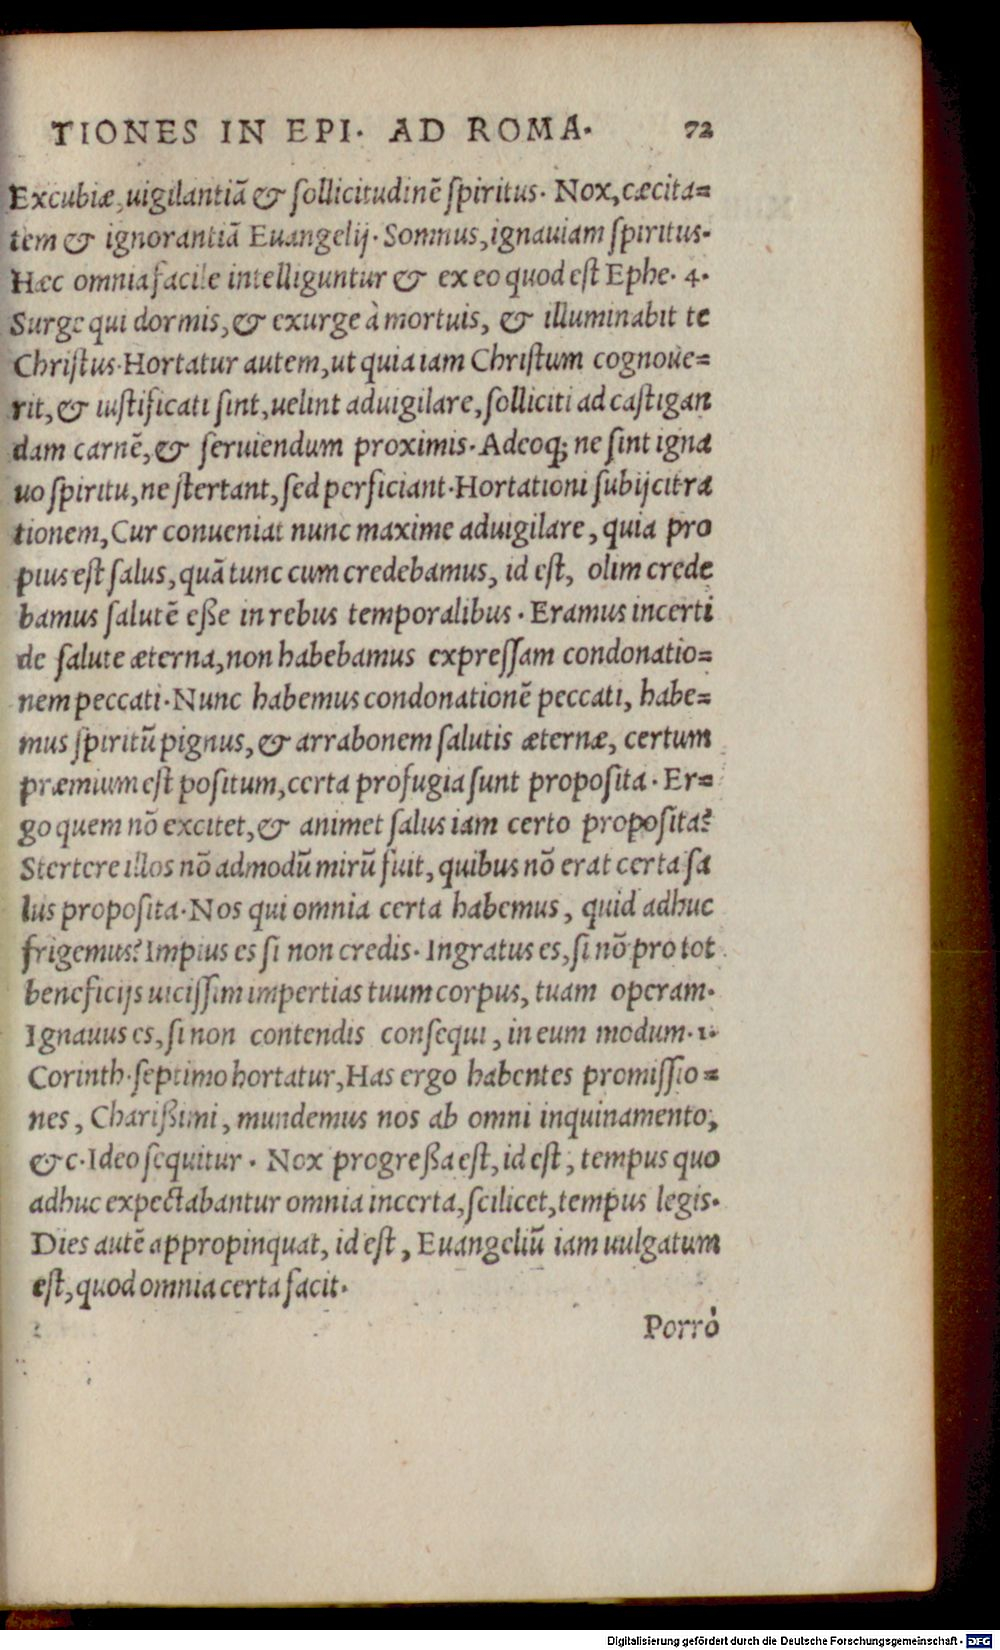 TIONES IN EPI. AD ROMA. 72
Excubiæ, uigilantiã & ſollicitudinẽ ſpiritus. Nox, cæcita=
tem & ignorantiã Euangelij. Somnus, ignauiam ſpiritus.
Hæc omnia facile intelliguntur & ex eo quod eſt Ephe. 4.
Surge qui dormis, & exurge à mortuis, & illuminabit te
Chriſtus. Hortatur autem, ut quia iam Chriſtum cognoue=
rit, & iuſtificati ſint, uelint aduigilare, ſolliciti ad caſtigan
dam carnẽ, & ſeruiendum proximis. Adeoq; ne ſint igna
uo ſpiritu, ne ſtertant, ſed perficiant. Hortationi ſubijcit ra
tionem, Cur conueniat nunc maxime aduigilare, quia pro
pius eſt ſalus, quã tunc cum credebamus, id eſt, olim crede
bamus ſalutẽ eße in rebus temporalibus. Eramus incerti
de ſalute æterna, non habebamus expreſſam condonatio=
nem peccati. Nunc habemus condonationẽ peccati, habe=
mus ſpiritũ pignus, & arrabonem ſalutis æternæ, certum
præmium eſt poſitum, certa profugia ſunt propoſita. Er=
go quem nõ excitet, & animet ſalus iam certo propoſita?
Stertere illos nõ admodũ mirũ fuit, quibus nõ erat certa ſa
lus propoſita. Nos qui omnia certa habemus, quid adhuc
frigemus? Impius es ſi non credis. Ingratus es, ſi nõ pro tot
beneficijs uiciſſim impertias tuum corpus, tuam operam.
Ignauus es, ſi non contendis conſequi, in eum modum. 1.
Corinth. ſeptimo hortatur, Has ergo habentes promiſſio=
nes, Charißimi, mundemus nos ab omni inquinamento,
&c. Ideo ſequitur. Nox progreßa eſt, id eſt, tempus quo
adhuc expectabantur omnia incerta, ſcilicet, tempus legis.
Dies autẽ appropinquat, id eſt, Euangeliũ iam uulgatum
eſt, quod omnia certa facit.
Porrò
Digitalisierung gefördert durch die Deutsche Forschungsgemeinschaft - DFG